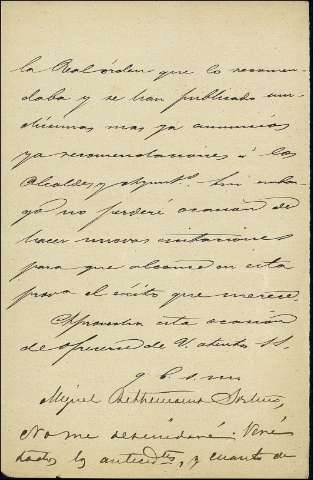 la Real órden que lo recomen-
daba y se han publicado mu-
chísimas mas ya anuncios
ya recomendaciones á los
Alcaldes y Ayuntos. Sin embar-
go no perderé ocasion de
hacer nuevas invitaciones
para que alcance en esta
prova el éxito que merece.
Aprovecha esta ocasión
de ofrecerse de V. atento SS.
q b. s. m
Miguel
No me descuidaré. Veré
todos los antecdtes, y cuanto de